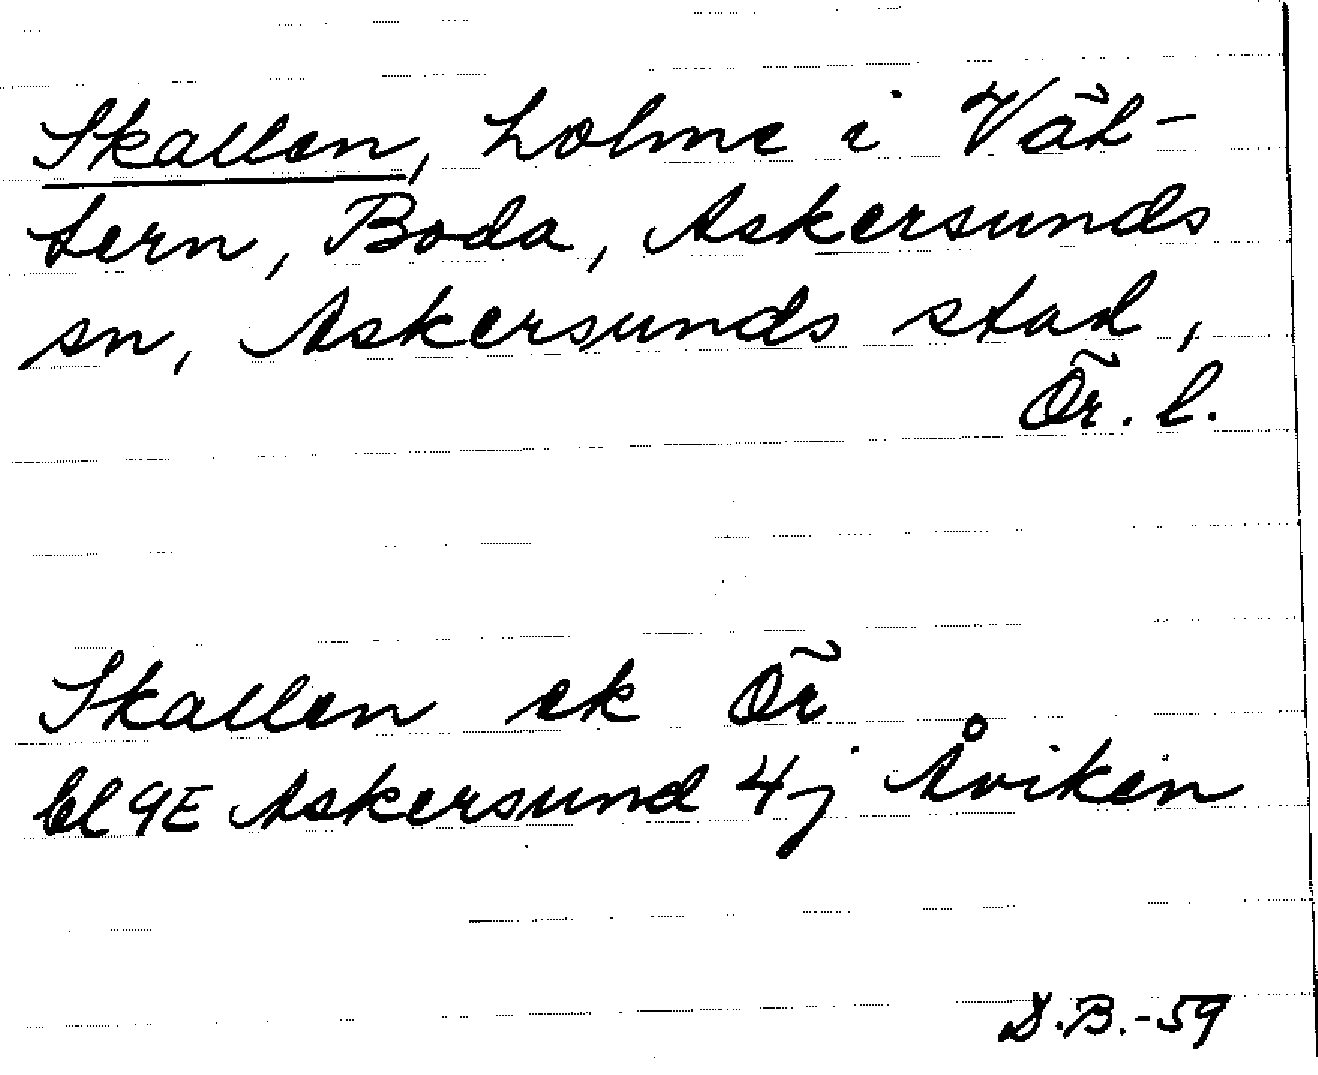 Skallen, holme i Vät-
tern, Boda, Askersunds
sn, Askersunds stad,
Ör. l.
Skallen ek Ör
bl 9E Askersund 4j Åviken
D.B.-59